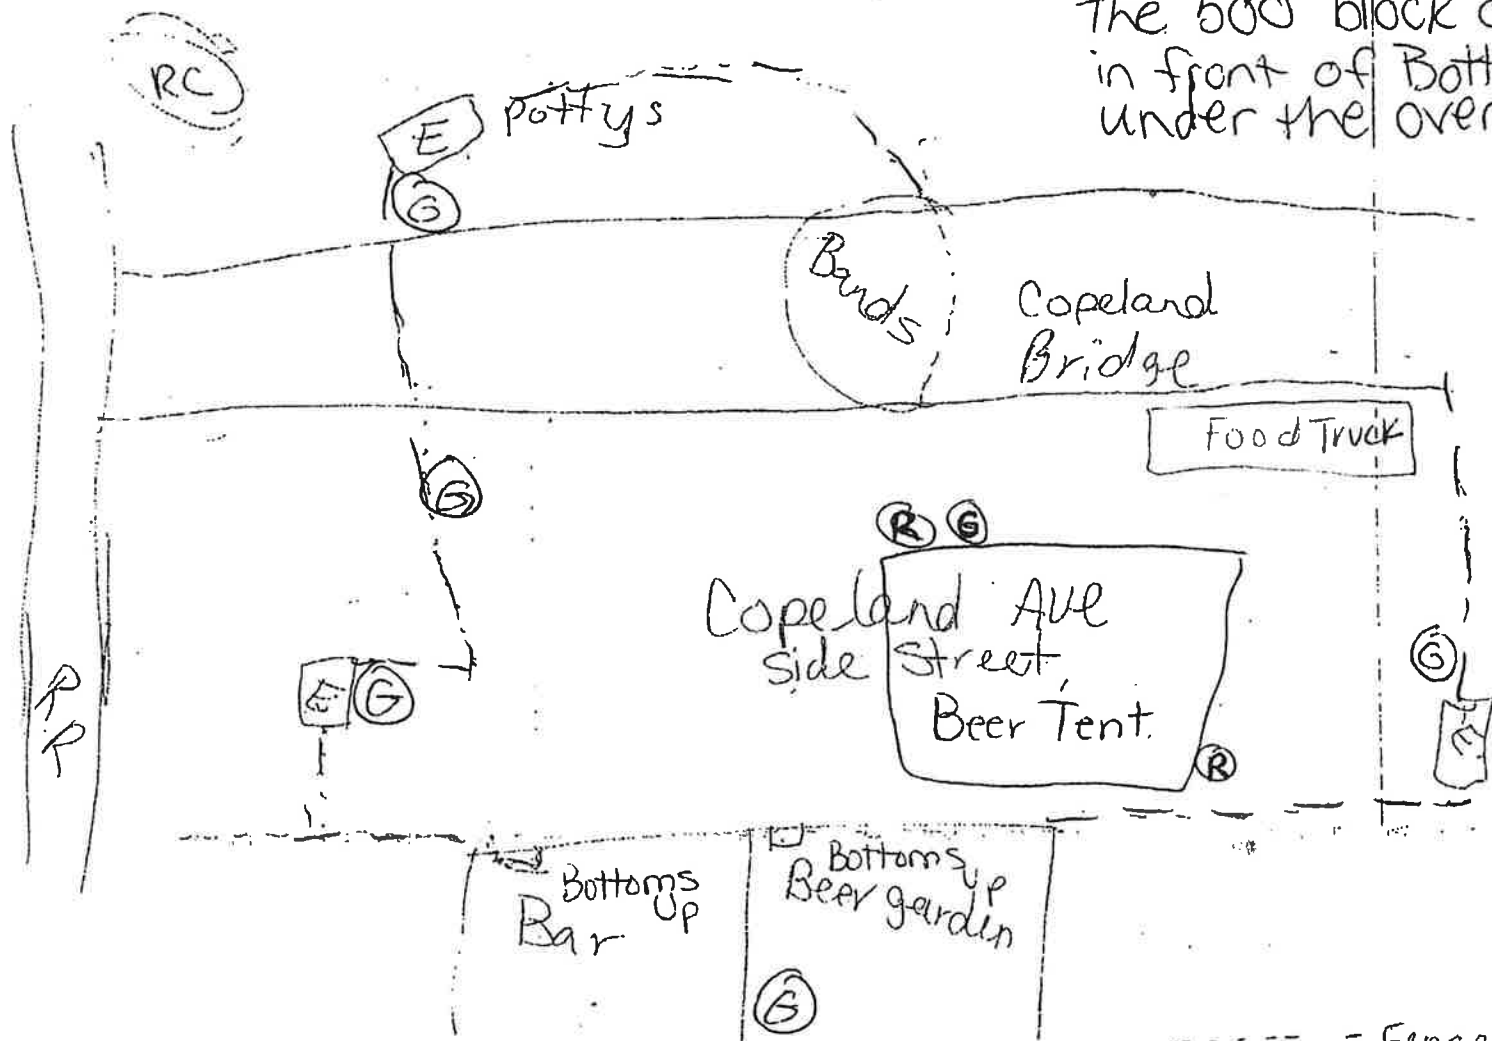 The 500 block
in front of Bott
under the over
RC
E
pottys
G
Bands
Copeland
Bridge
Food Truck
G
R G
Copeland Ave
side street
Beer Tent.
G
E G
E
R
RR
Bottoms
Up
Bar
Bottoms
up
Beer garden
G